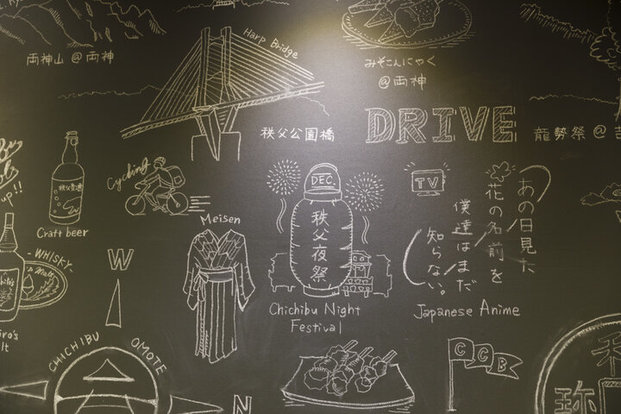 両神山@両神
Harp Bridge
秩父公園橋
みそこんにゃく
@両神
DRIVE
龍勢祭@吉
up!!
秩父麦酒
Craft beer
Cycling
-WHISKY-
& Malt
W
Meisen
DEC.
秩父夜祭
Chichibu Night
Festival
TV
あの日見た
花の名前を
僕達はまだ
知らない。
Japanese Anime
CHICHIBU OMOTE
N
CCB